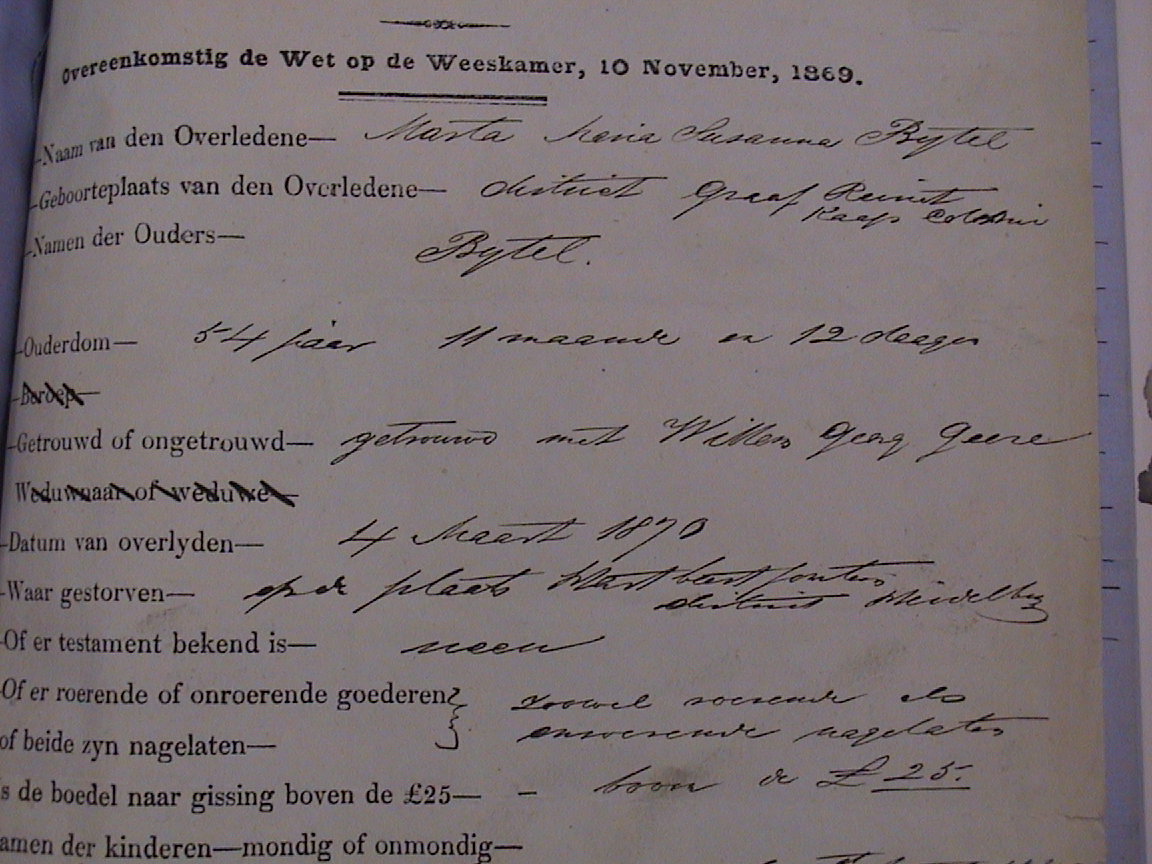 Overeenkomstig de Wet op de Weeskamer, 10 November, 1869.
Naam van den Overledene— Marta Maria Susanna Bijtel
Geboorteplaats van den Overledene— district Graaf Reinet
Kaaps Colonie
Namen der Ouders— Bijtel.
Ouderdom— 54 jaar 11 maande en 12 daagen
Beroep—
Getrouwd of ongetrouwd— getrouwd met Willem Georg Geere
Weduwnaar of weduwe—
Datum van overlyden— 4 Maart 1870
Waar gestorven— op de plaats Hartbeestfontein
district Heidelberg
Of er testament bekend is— neen
Of er roerende of onroerende goederen zoowel roerende als
of beide zyn nagelaten— onroerende nagelaten
s de boedel naar gissing boven de £25— - boven de £ 25.
amen der kinderen—mondig of onmondig—